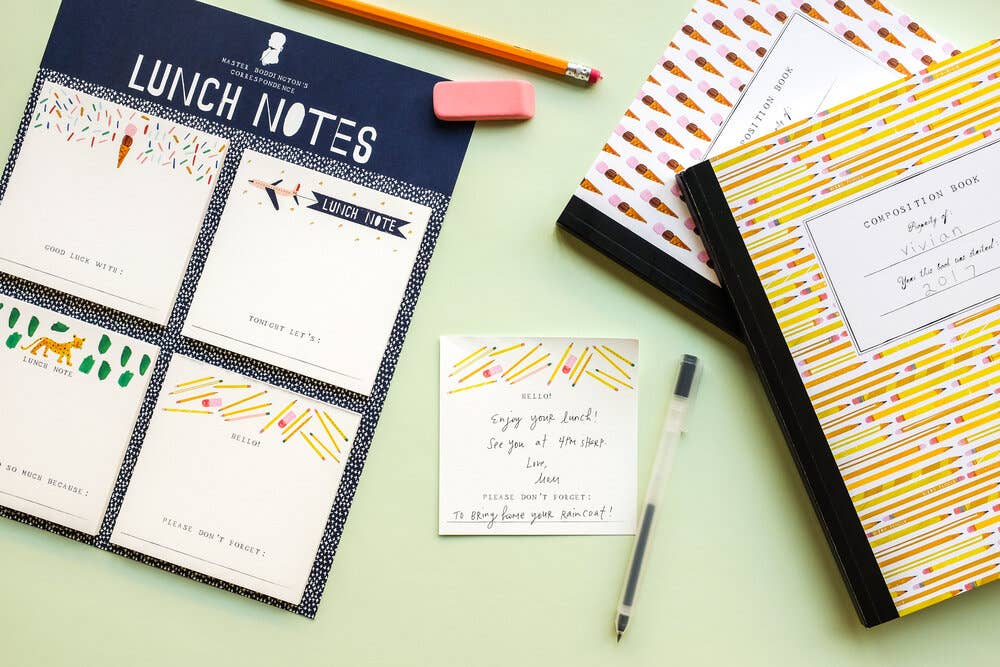 MASTER BODDINGTON'S
CORRESPONDENCE
LUNCH NOTES
GOOD LUCK WITH:
LUNCH NOTE
TONIGHT LET'S:
LUNCH NOTE
SO MUCH BECAUSE:
HELLO!
PLEASE DON'T FORGET:
HELLO!
Enjoy your lunch!
See you at 4PM SHARP.
Love,
Mum
PLEASE DON'T FORGET:
To Bring home your Raincoat!
POSITION BOOK
of
COMPOSITION BOOK
Property of:
Vivian
Year this book was started:
2017